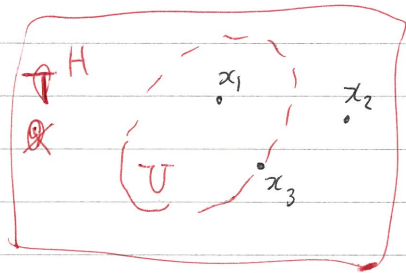 H
x₁
x₂
U
x₃